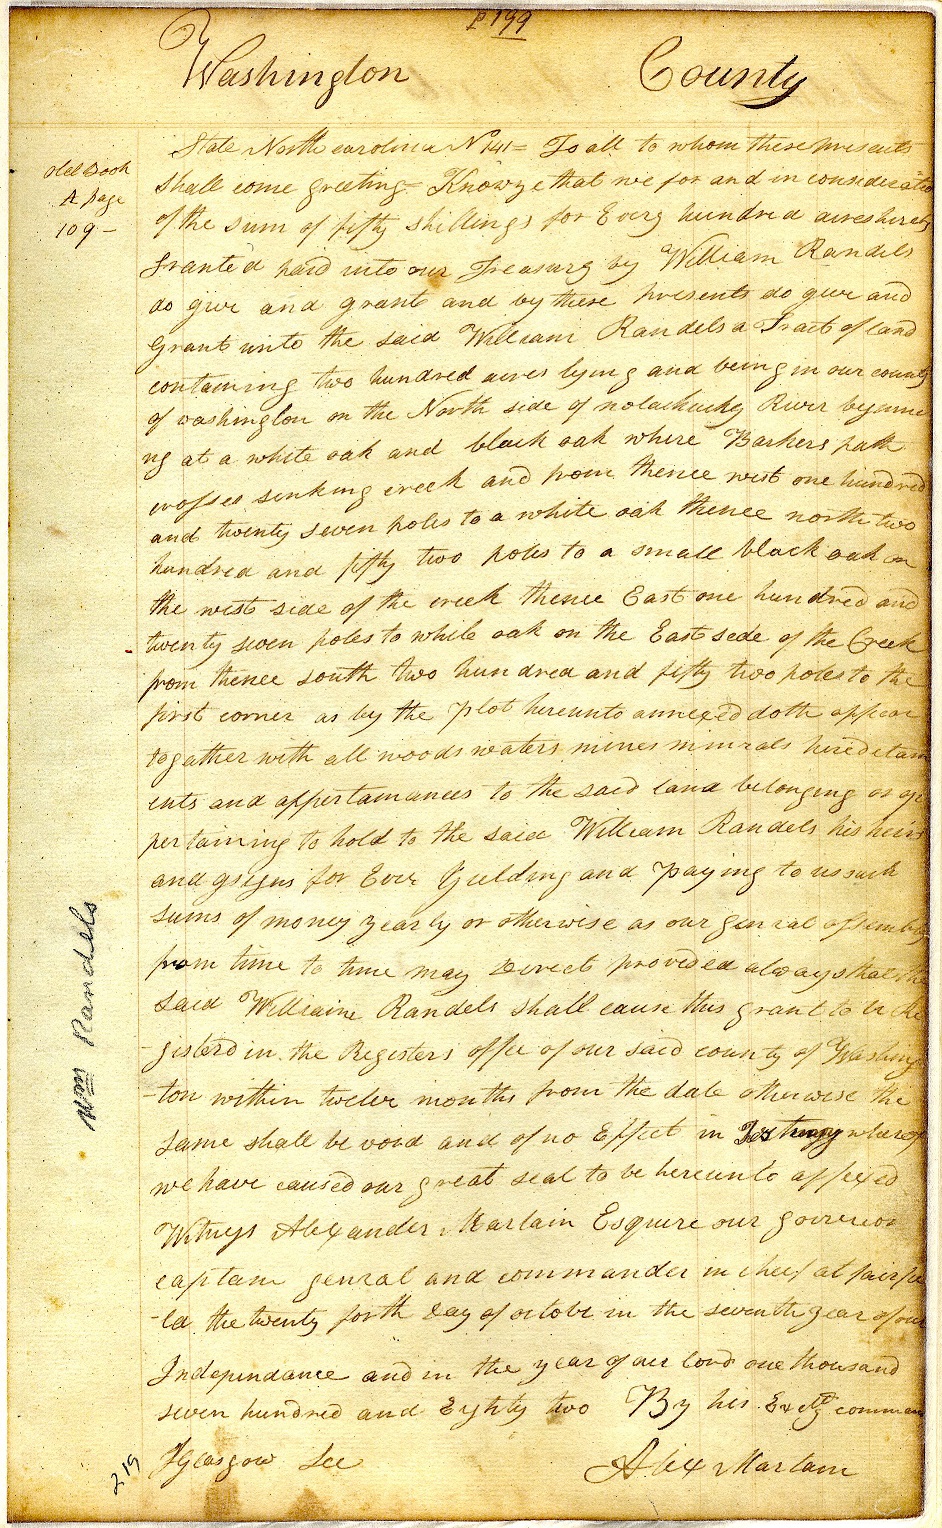 P 199
Washington County
Old Book
A page
109 -
State North carolina No 141 = To all to whom these presents
shall come greeting = Know ye that we for and in considerati
of the sum of fifty shillings for Every hundred acres hereby
granted paid into our Treasury by William Randels
do give and grant and by these presents do give and
grant unto the said William Randels a Tract of land
containing two hundred acres lying and being in our county
of washington on the North side of nolachucky River beginni
ng at a white oak and black oak where Barkers path
crosses sinking creek and from thence west one hundred
and twenty seven poles to a white oak thence north two
hundred and fifty two poles to a small black oak on
the west side of the creek thence East one hundred and
twenty seven poles to while oak on the East sede of the Creek
from thence south two hundred and fifty two poles to the
first corner as by the plot hereunto annexed doth appear
togather with all woods waters mines minirals hereditam
ents and appertainances to the said land belonging or ap
pertaining to hold to the said William Randels his heirs
and assigns for Ever Yielding and paying to us such
sums of money yearly or otherwise as our genral assembly
from time to time may Direct provided always that the
said William Randels shall cause this grant to be Re
gisterd in the Registers offce of our said county of Washing
-ton within twelve months from the date otherwise the
same shall be void and of no Effect in Testimony whereof
we have caused our great seal to be hereunto affixed
Witness Alexander Martain Esquire our governor
captain genral and commander in cheef at fairfie
-ld the twenty forth Day of octobr in the seventh year of our
Independance and in the year of our lord one thousand
seven hundred and Eighty two By his Excely comman
J Glasgow Sec Alex Martain
Wm Randels
219